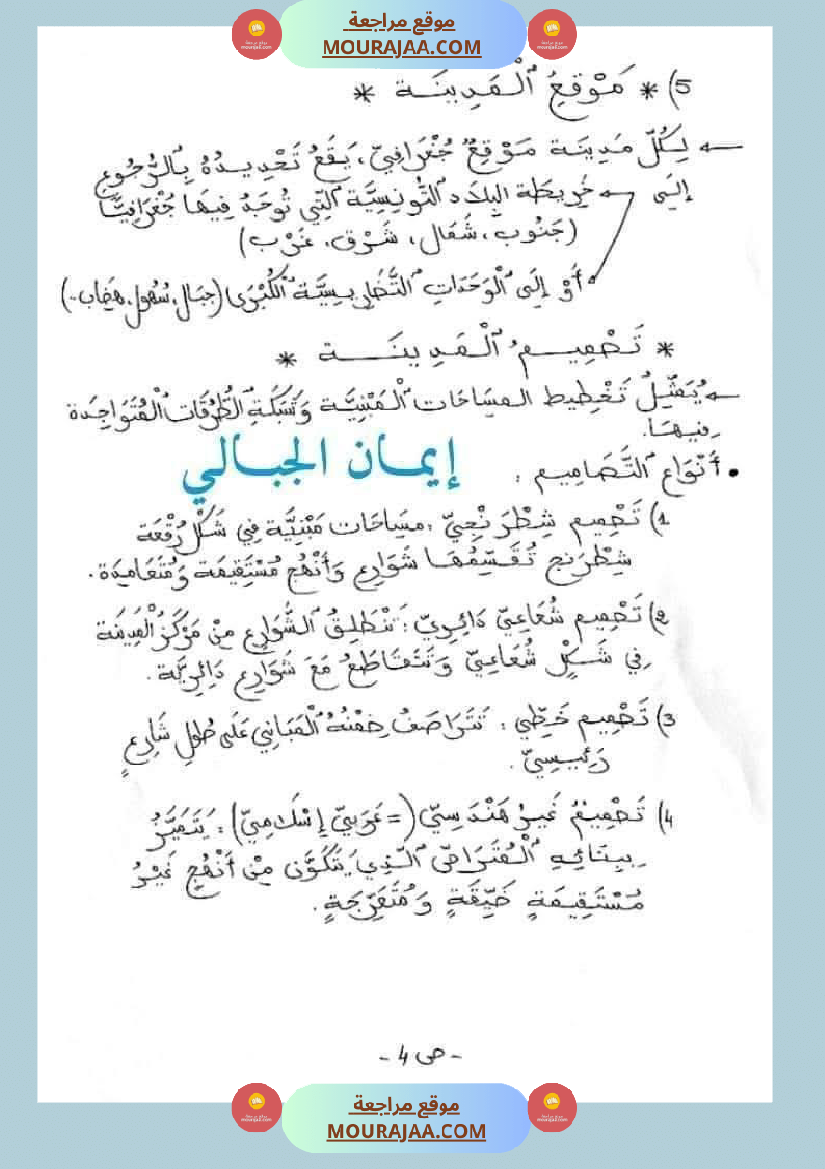 موقع مراجعة
MOURAJAA.COM
5) * مَوْقِعُ ٱلْمَدِينَة *
← لِكُلّ مَدِينَة مَوْقِعٌ جُغْرَافِيّ، يَقَعُ تَحْدِيدُهُ بِٱلرُّجُوعِ
إِلَى ← خَرِيطَة البِلَادِ ٱلتُّونِسِيَّة ٱلَّتِي تُوجَدُ فِيهَا جُغْرَافِيًّا
(جَنُوب، شَمَال، شَرْق، غَرْب)
أَوْ إِلَى ٱلْوَحَدَاتِ ٱلتَّضَارِيسِيَّة ٱلْكُبْرَى (جِبَال، سُهُول، هِضَاب..)
* تَصْمِيمُ ٱلْمَدِينَة *
← يُمَثِّلُ تَخْطِيط المِسَاحَات ٱلْمَبْنِيَّة وَشَبَكَةِ ٱلطُّرُقَات ٱلْمُتَوَاجِدَة
فِيهَا.
• أَنْوَاع ٱلتَّصَامِيم :
إيمان الجبالي
1) تَصْمِيم شِطْرَنْجِيّ : مِسَاحَات مَبْنِيَّة فِي شَكْل رُقْعَة
شِطْرَنج تُقَسِّمُهَا شَوَارِع وَأَنْهُج مُسْتَقِيمَة وَمُتَعَامِدَة.
2) تَصْمِيم شُعَاعِيّ دَائِرِيّ : تَنْطَلِقُ ٱلشَّوَارِع مِنْ مَرْكَزِ ٱلْمَدِينَة
فِي شَكْلٍ شُعَاعِيّ وَتَتَقَاطَعُ مَعَ شَوَارِع دَائِرِيَّة.
3) تَصْمِيم خَطِّي : تَتَرَاصَفُ ضِمْنَهُ ٱلْمَبَانِي عَلَى طُولِ شَارِعٍ
رَئِيسِيّ.
4) تَصْمِيمٌ غَيْرُ هَنْدَسِيّ (= عَرَبِيّ إِسْلَامِيّ) : يَتَمَيَّزُ
بِبِنَائِهِ ٱلْمُتَرَاصّ ٱلَّذِي يَتَكَوَّن مِنْ أَنْهُجٍ غَيْرُ
مُسْتَقِيمَةٍ ضَيِّقَةٍ وَمُتَعَرِّجَةٍ.
- ص 4 -
موقع مراجعة
MOURAJAA.COM